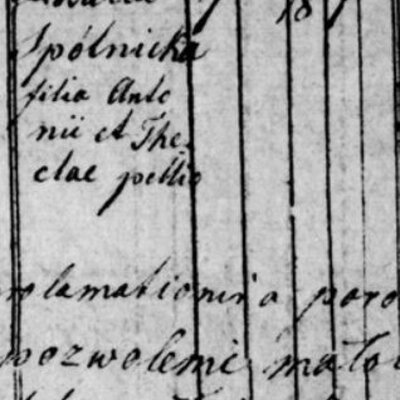 18
Spólnicka
filia Anto
nii et The
clae
rolamationis a paro
pozwolenie mało